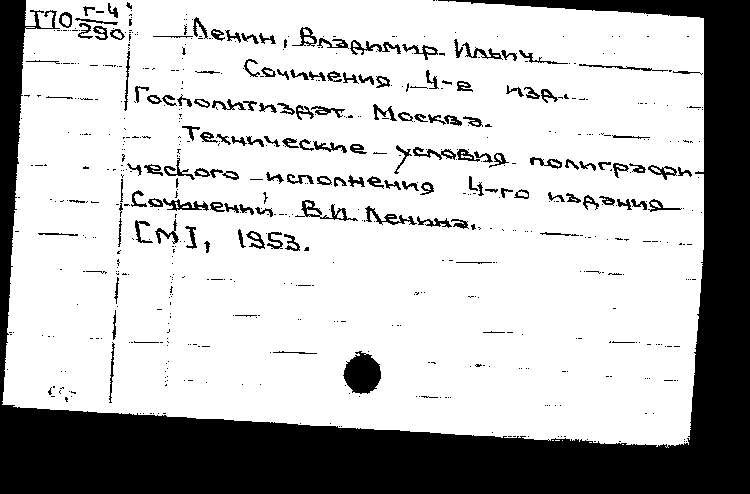 Т70 Г-4/290
Ленин, Владимир Ильич.
Сочинения, 4-е изд.
Госполитиздат. Москва.
Технические условия полиграфи-
ческого исполнения 4-го издания
Сочинений В.И. Ленина.
[М], 1953.